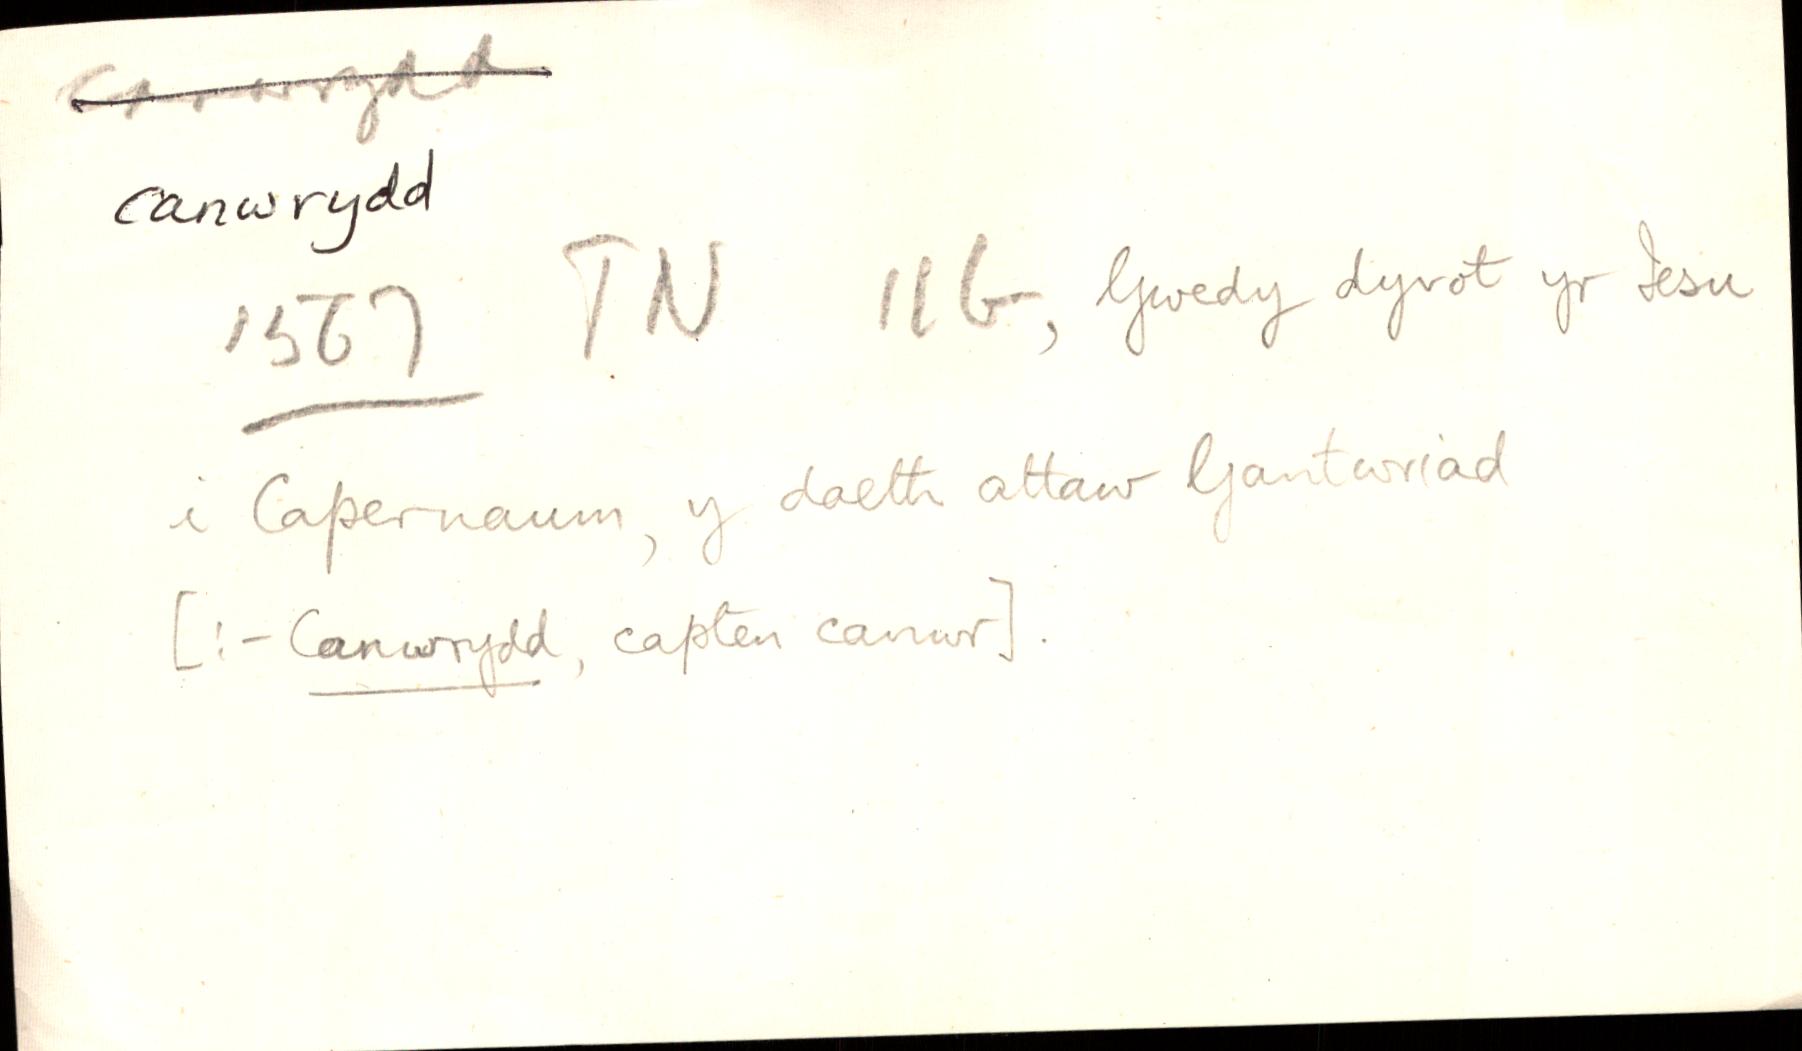 canwrydd
canwrydd
1567 TN 11b, Gwedy dyvot yr Iesu
i Capernaum, y daeth attaw Gantwriad
[:- Canwrydd, capten canwr].